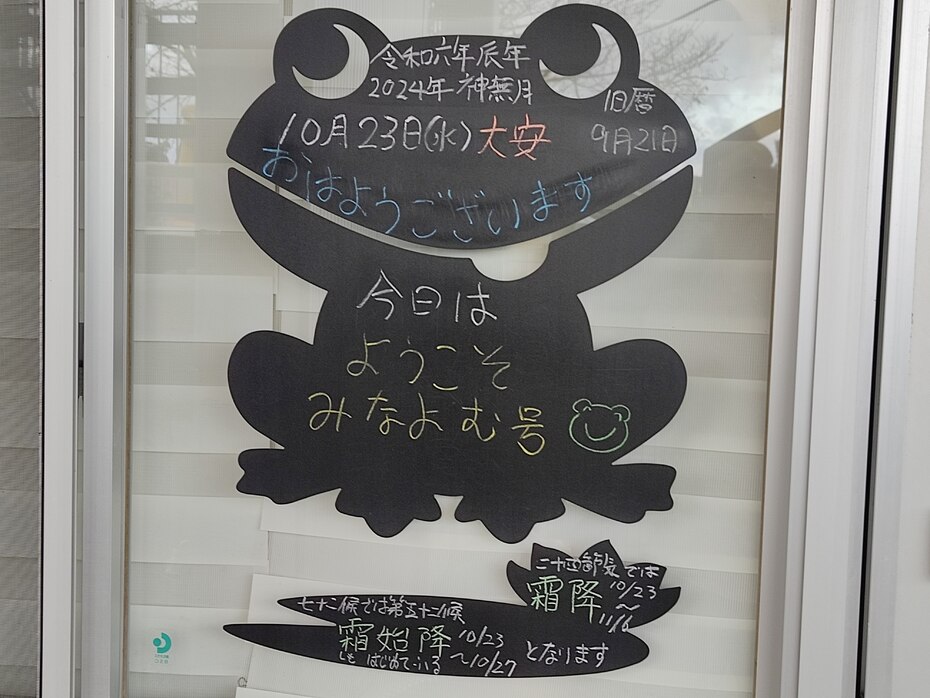 令和六年辰年
2024年 神無月
10月23日(水)大安
旧暦
9月21日
おはようございます
今日は
ようこそ
みなよむ号
二十四節気では
霜降 10/23
～
11/6
七十二候では第五十二候
霜始降 10/23
～10/27
しも はじめて
となります